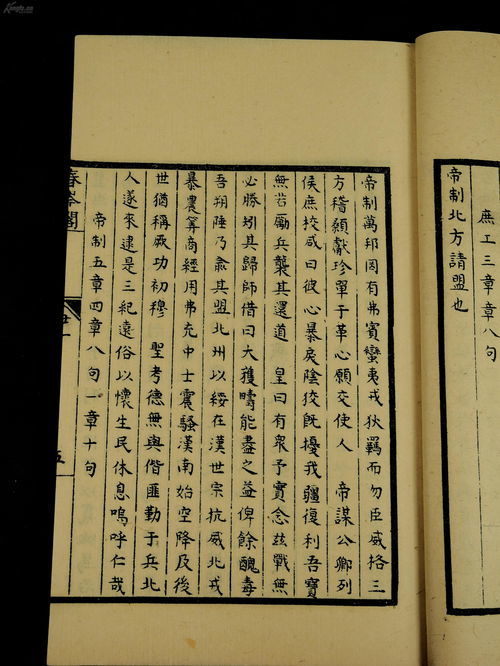 庶工三章章八句
帝制北方請盟也
帝制萬邦罔有弗賓蠻夷戎狄羈而勿臣威格三
方稽顙獻珍單于革心願交使人 帝謀公卿列
侯庶校咸曰彼心暴戾陰狡旣擾我疆復利吾寶
無若勵兵襲其還道 皇曰有衆予實念玆戰無
必勝矧其歸師借曰大獲疇能盡之益俾餘醜毒
吾朔陲乃肅其盟北州以綏在漢世宗抗威北戎
暴農筭商經用弗充中士震騷漢南始空降及後
世猶稱厥功初穆 聖考德無與偕匪勤于兵北
人遂來逮是三紀遠俗以懷生民休息嗚呼仁哉
帝制五章四章八句一章十句
春岑閣
五